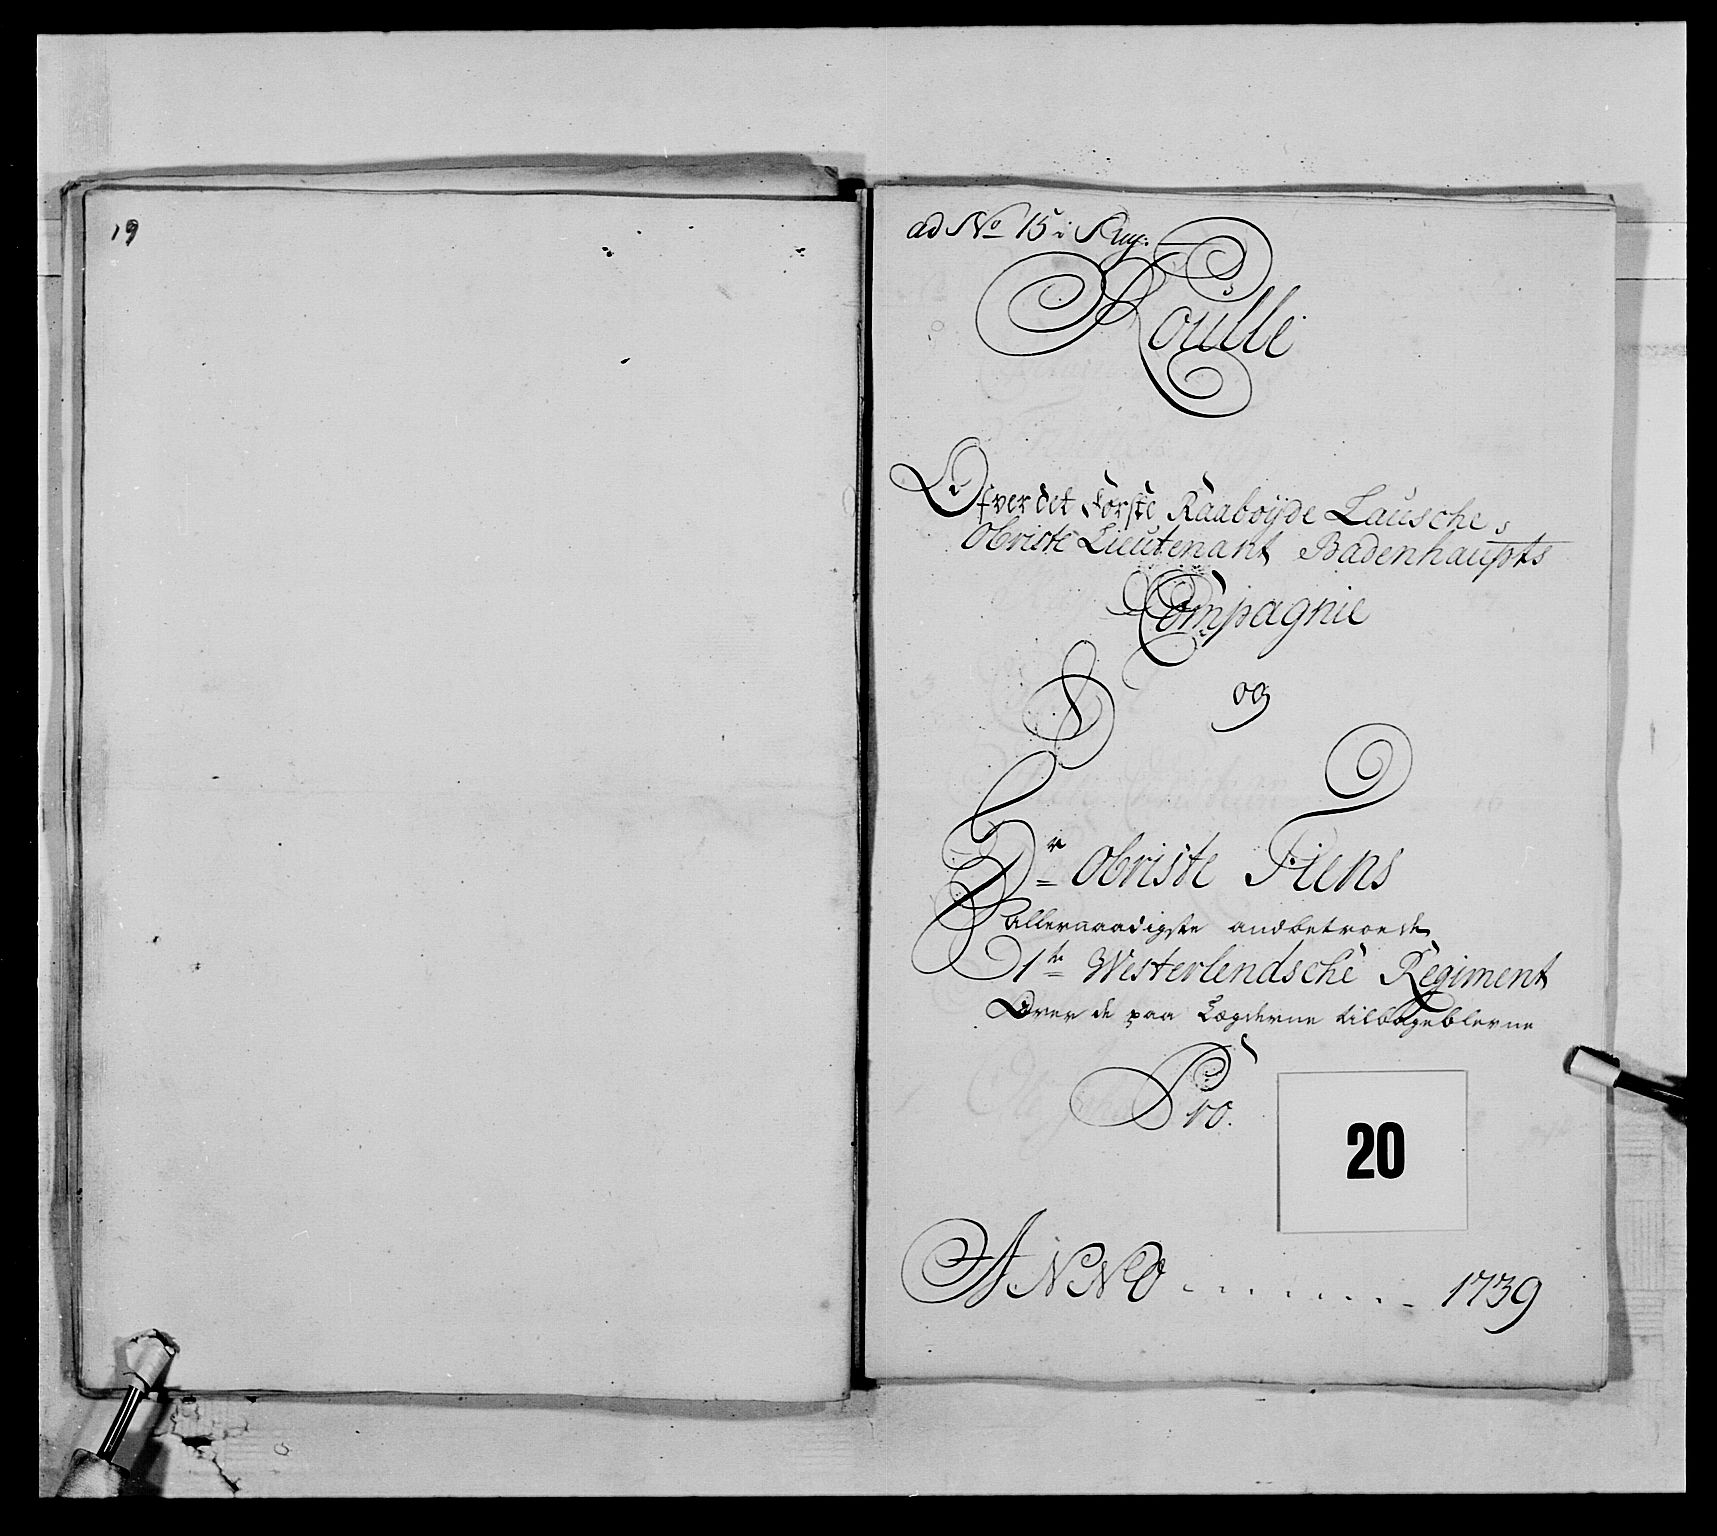 19
ad No 15 i
Roulle
Ofver det Første Raabøyde Lausche
Obriste Lieutenant Badenhaupts
Compagnie
og
Hr Obriste Fiens
Allernaadigste anbetroede
1te Westerlendsche Regiment
Over de paa Lægderne tilbageblevne
Pro.
20
ANNO 1739